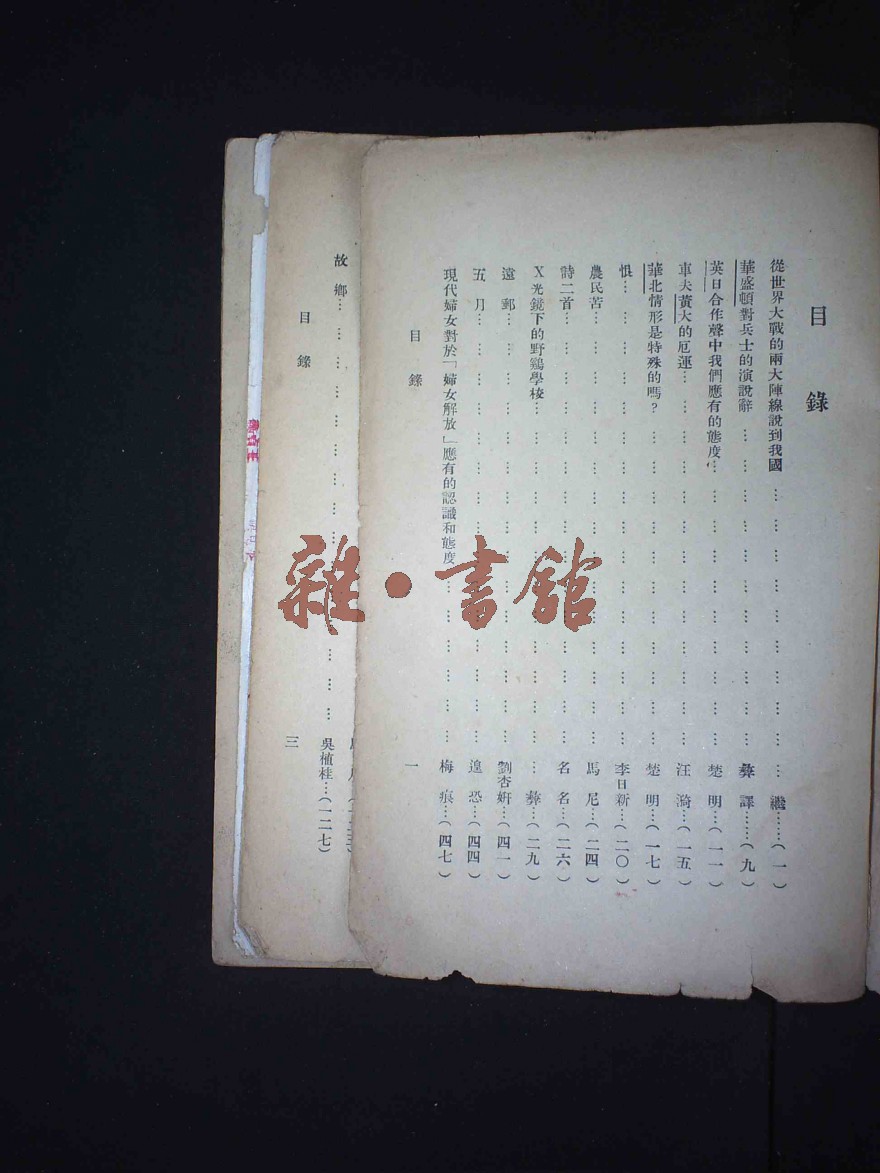 目錄
從世界大戰的兩大陣線說到我國………………………………繼……（一）
華盛頓對兵士的演說辭………………………………彝譯………（九）
英日合作聲中我們應有的態度………………………………楚明……（一一）
車夫黃大的厄運………………………………汪漪……（一五）
華北情形是特殊的嗎？………………………………楚明……（一七）
恨………………………………李日新…（二〇）
農民苦………………………………馬尼……（二四）
詩二首………………………………名名……（二六）
X光鏡下的野鷄學校………………………………彝……（二九）
遠郵………………………………劉杏妍…（四一）
五月………………………………遑恐…（四四）
現代婦女對於「婦女解放」應有的認識和態度………………………………梅痕……（四七）
目錄
一
故鄉………………………………吳植桂…（一二七）
目錄
三
雜·書館